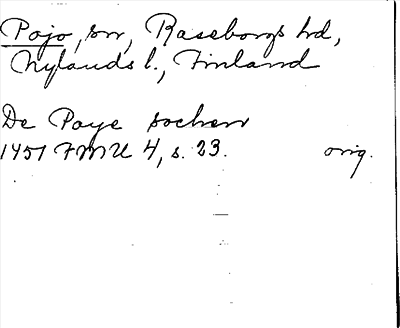 Pojo, sn, Raseborgs hd,
Nylands l., Finland
De Poye sochen
1451 FMU 4, s. 23. orig.